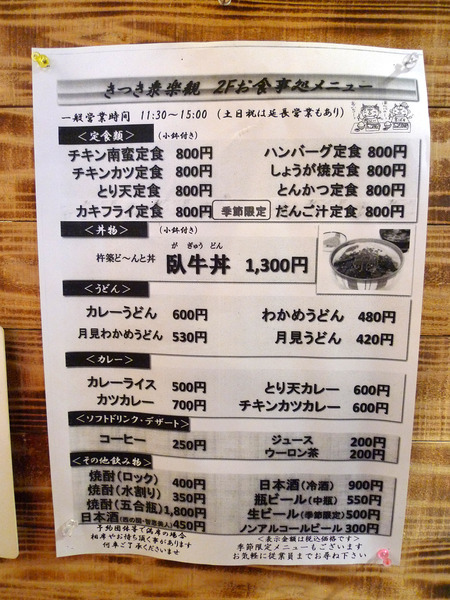 きつき衆楽観 2Fお食事処メニュー
一般営業時間 11:30～15:00 (土日祝は延長営業もあり)
＜定食類＞ (小鉢付き)
チキン南蛮定食 800円 ハンバーグ定食 800円
チキンカツ定食 800円 しょうが焼定食 800円
とり天定食 800円 とんかつ定食 800円
カキフライ定食 800円 季節限定 だんご汁定食 800円
＜丼物＞ (小鉢付き)
が ぎゅう どん
杵築ど～んと丼 臥牛丼 1,300円
＜うどん＞
カレーうどん 600円 わかめうどん 480円
月見わかめうどん 530円 月見うどん 420円
＜カレー＞
カレーライス 500円 とり天カレー 600円
カツカレー 700円 チキンカツカレー 600円
＜ソフトドリンク・デザート＞
コーヒー 250円 ジュース 200円
ウーロン茶 200円
＜その他飲み物＞
焼酎(ロック) 400円 日本酒(冷酒) 900円
焼酎(水割り) 350円 瓶ビール(中瓶) 550円
焼酎(五合瓶) 1,800円 生ビール(季節限定) 500円
日本酒(西の関・智恵美人) 450円 ノンアルコールビール 300円
予約団体等で満席の場合
相席やお待ち頂く事があります
何卒ご了承くださいませ
＜表示金額は税込価格です＞
季節限定メニューもございます
お気軽に従業員までお尋ね下さい